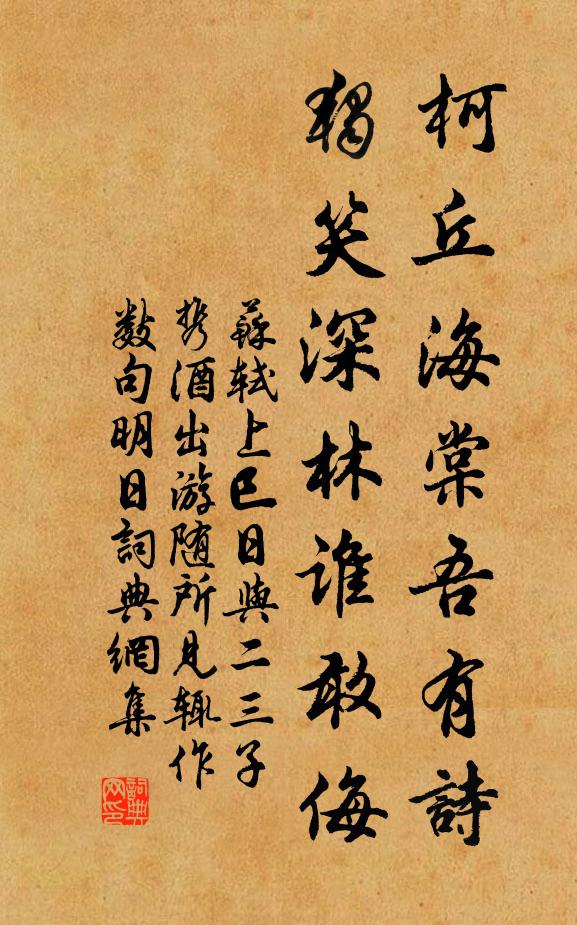 柯丘海棠吾有詩
獨笑深林誰敢侮
蘇軾上巳日與二三子
携酒出游随所見輒作
數句明日詞典網集
詞典網印